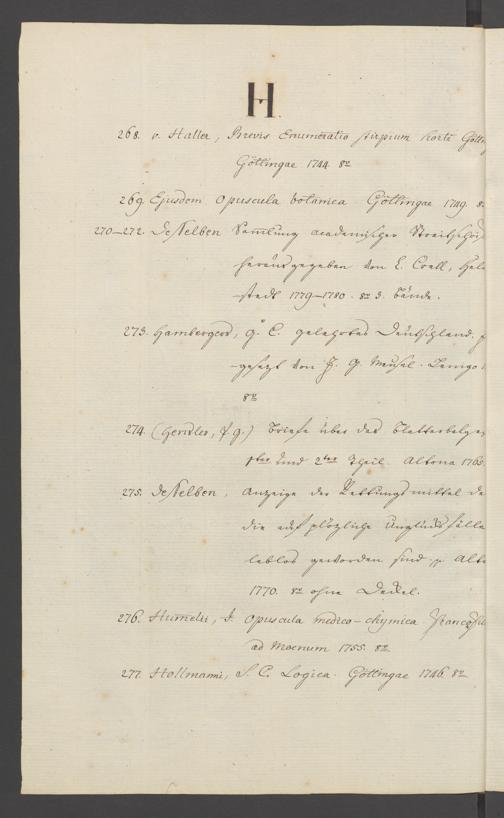 H.
268. v. Haller, Brevis Enumeratio stirpium horti Götting
Göttingae 1744. 8º
269. Ejusdem Opuscula botanica Göttingae 1749. 8º
270–272. Desselben Sammlung academischer Streitschri
herausgegeben von L. Crell, Helm
-stedt 1779–1780. 8º 3. Bände.
273. Hambergers, G. C. gelehrtes Deutschland, f
-gesezt von J. G. Meusel. Lemgo
8º
274. (Hensler, P. G.) Briefe über das Blatterbelzen
1ster und 2ter Theil. Altona 1765
275. Desselben, Anzeige der Rettungsmittel de
die auf plözliche Unglücksfälle
leblos geworden sind, Alto
1770. 8º ohne Deckel.
276. Humelii, J. Opuscula medico-chymica Francofu
ad Moenum 1755. 8º
277. Hollmanni, S. C. Logica. Göttingae 1746. 8º